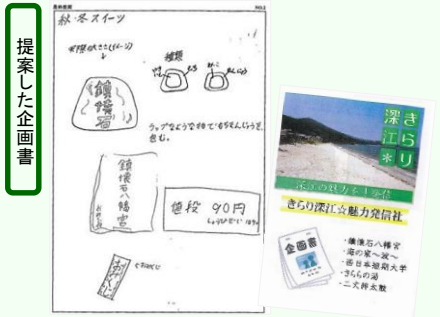 提案した企画書
NO.2
秋・冬スイーツ
種類
鎮懐石
ラップなような物でもちまんじゅうを
包む。
鎮懐石八幡宮
値段 90円
きらり
深江*
深江の魅力を発信
きらり深江☆魅力発信社
企画書
・鎮懐石八幡宮
・海の家～波～
・西日本短期大学
・きららの湯
・二丈絆太鼓